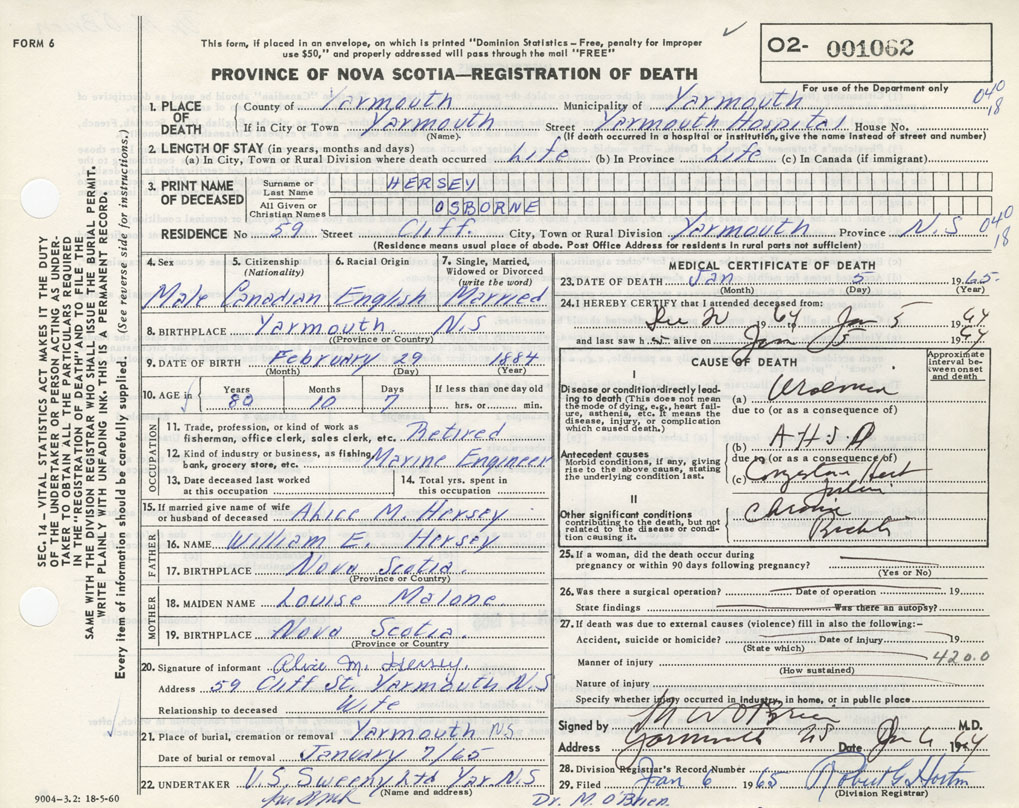 FORM 6
This form, if placed in an envelope, on which is printed "Dominion Statistics – Free, penalty for improper
use $50," and properly addressed will pass through the mail "FREE"
02- 001062
PROVINCE OF NOVA SCOTIA—REGISTRATION OF DEATH
For use of the Department only
040
18
1. PLACE OF DEATH
County of Yarmouth Municipality of Yarmouth
If in City or Town Yarmouth Street Yarmouth Hospital House No.
(Name) (If death occurred in a hospital or institution, give the name instead of street and number)
2. LENGTH OF STAY (in years, months and days)
(a) In City, Town or Rural Division where death occurred Life (b) In Province Life (c) In Canada (if immigrant)
3. PRINT NAME OF DECEASED
Surname or Last Name HERSEY
All Given or Christian Names OSBORNE
RESIDENCE No 59 Street Cliff City, Town or Rural Division Yarmouth Province N.S
040
18
(Residence means usual place of abode. Post Office Address for residents in rural parts not sufficient)
4. Sex 5. Citizenship (Nationality) 6. Racial Origin 7. Single, Married, Widowed or Divorced (write the word)
Male Canadian English Married
8. BIRTHPLACE Yarmouth. N.S
(Province or Country)
9. DATE OF BIRTH February 29 1884
(Month) (Day) (Year)
10. AGE in Years Months Days If less than one day old
80 10 7 hrs. or min.
OCCUPATION
11. Trade, profession, or kind of work as
fisherman, office clerk, sales clerk, etc. Retired
12. Kind of industry or business, as fishing,
bank, grocery store, etc. Marine Engineer
13. Date deceased last worked
at this occupation
14. Total yrs. spent in
this occupation
15. If married give name of wife
or husband of deceased Alice M. Hersey
FATHER
16. NAME William E. Hersey
17. BIRTHPLACE Nova Scotia.
(Province or Country)
MOTHER
18. MAIDEN NAME Louise Malone
19. BIRTHPLACE Nova Scotia.
(Province or Country)
20. Signature of informant Alice M. Hersey.
Address 59 Cliff St. Yarmouth N.S
Relationship to deceased Wife
21. Place of burial, cremation or removal Yarmouth N.S
Date of burial or removal January 7/65
22. UNDERTAKER V.S. Sweeny Ltd Yar. N.S
(Name and address)
9004-3.2: 18-5-60
MEDICAL CERTIFICATE OF DEATH
23. DATE OF DEATH Jan 5 1965
(Month) (Day) (Year)
24. I HEREBY CERTIFY that I attended deceased from:
Dec 20 1964 Jan 5 1964
and last saw him alive on Jan 5 1964
CAUSE OF DEATH
Approximate interval between onset and death
I
Disease or condition directly leading to death (This does not mean
the mode of dying, e.g., heart failure, asthenia, etc. It means the
disease, injury, or complication
which caused death.)
(a) Uraemia
due to (or as a consequence of)
(b) A.H.S.D
due to (or as a consequence of)
Antecedent causes
Morbid conditions, if any, giving
rise to the above cause, stating
the underlying condition last.
(c) Congestive Heart
Failure
II
Other significant conditions
contributing to the death, but not
related to the disease or condition causing it.
Chronic
25. If a woman, did the death occur during
pregnancy or within 90 days following pregnancy?
(Yes or No)
26. Was there a surgical operation? Date of operation 19
State findings Was there an autopsy?
27. If death was due to external causes (violence) fill in also the following:–
Accident, suicide or homicide? Date of injury 19
(State which)
Manner of injury 420.0
(How sustained)
Nature of injury
Specify whether injury occurred in industry, in home, or in public place
Signed by M W O'Brien M.D.
Address Yarmouth NS Date Jan 6 1964
28. Division Registrar's Record Number
29. Filed Jan 6 1965 Robert G. Horton
(Division Registrar)
Dr. M. O'Brien
SEC. 14 – VITAL STATISTICS ACT MAKES IT THE DUTY
OF THE UNDERTAKER OR PERSON ACTING AS UNDERTAKER TO OBTAIN ALL THE PARTICULARS REQUIRED
IN THE "REGISTRATION OF DEATH" AND TO FILE THE
SAME WITH THE DIVISION REGISTRAR WHO SHALL ISSUE THE BURIAL PERMIT.
WRITE PLAINLY WITH UNFADING INK. THIS IS A PERMANENT RECORD.
Every item of information should be carefully supplied. (See reverse side for instructions.)